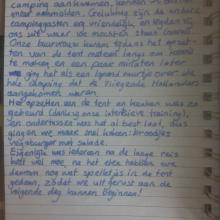 camping aankwamen, konden
enkel achmidden. Gelukkig zijn de andere
campinggasten erg vriendelijk, en legden ze
ons uit waar de moesten staan.
Onze buurvrouw kwam tijdens het opzet-
ten van de tent meteen langs om kennis
te maken en een paar minuten later
ging het als een lopend vuurtje over de
hele camping dat de Vliegende Hollanders
aangekomen waren.
Het opzetten van de tent en keuken was zo
gebeurd (dankzij onze intensieve training),
en ondertussen was het al best laat, dus
gingen we maar snel koken: broodjes
vegaburger met salade.
Eigenlijk was iedereen na de lange reis
best wel moe, na het eten hebben we
daarom nog wat spelletjes in de tent
gedaan, zodat we uitgerust aan de
volgende dag kunnen beginnen!